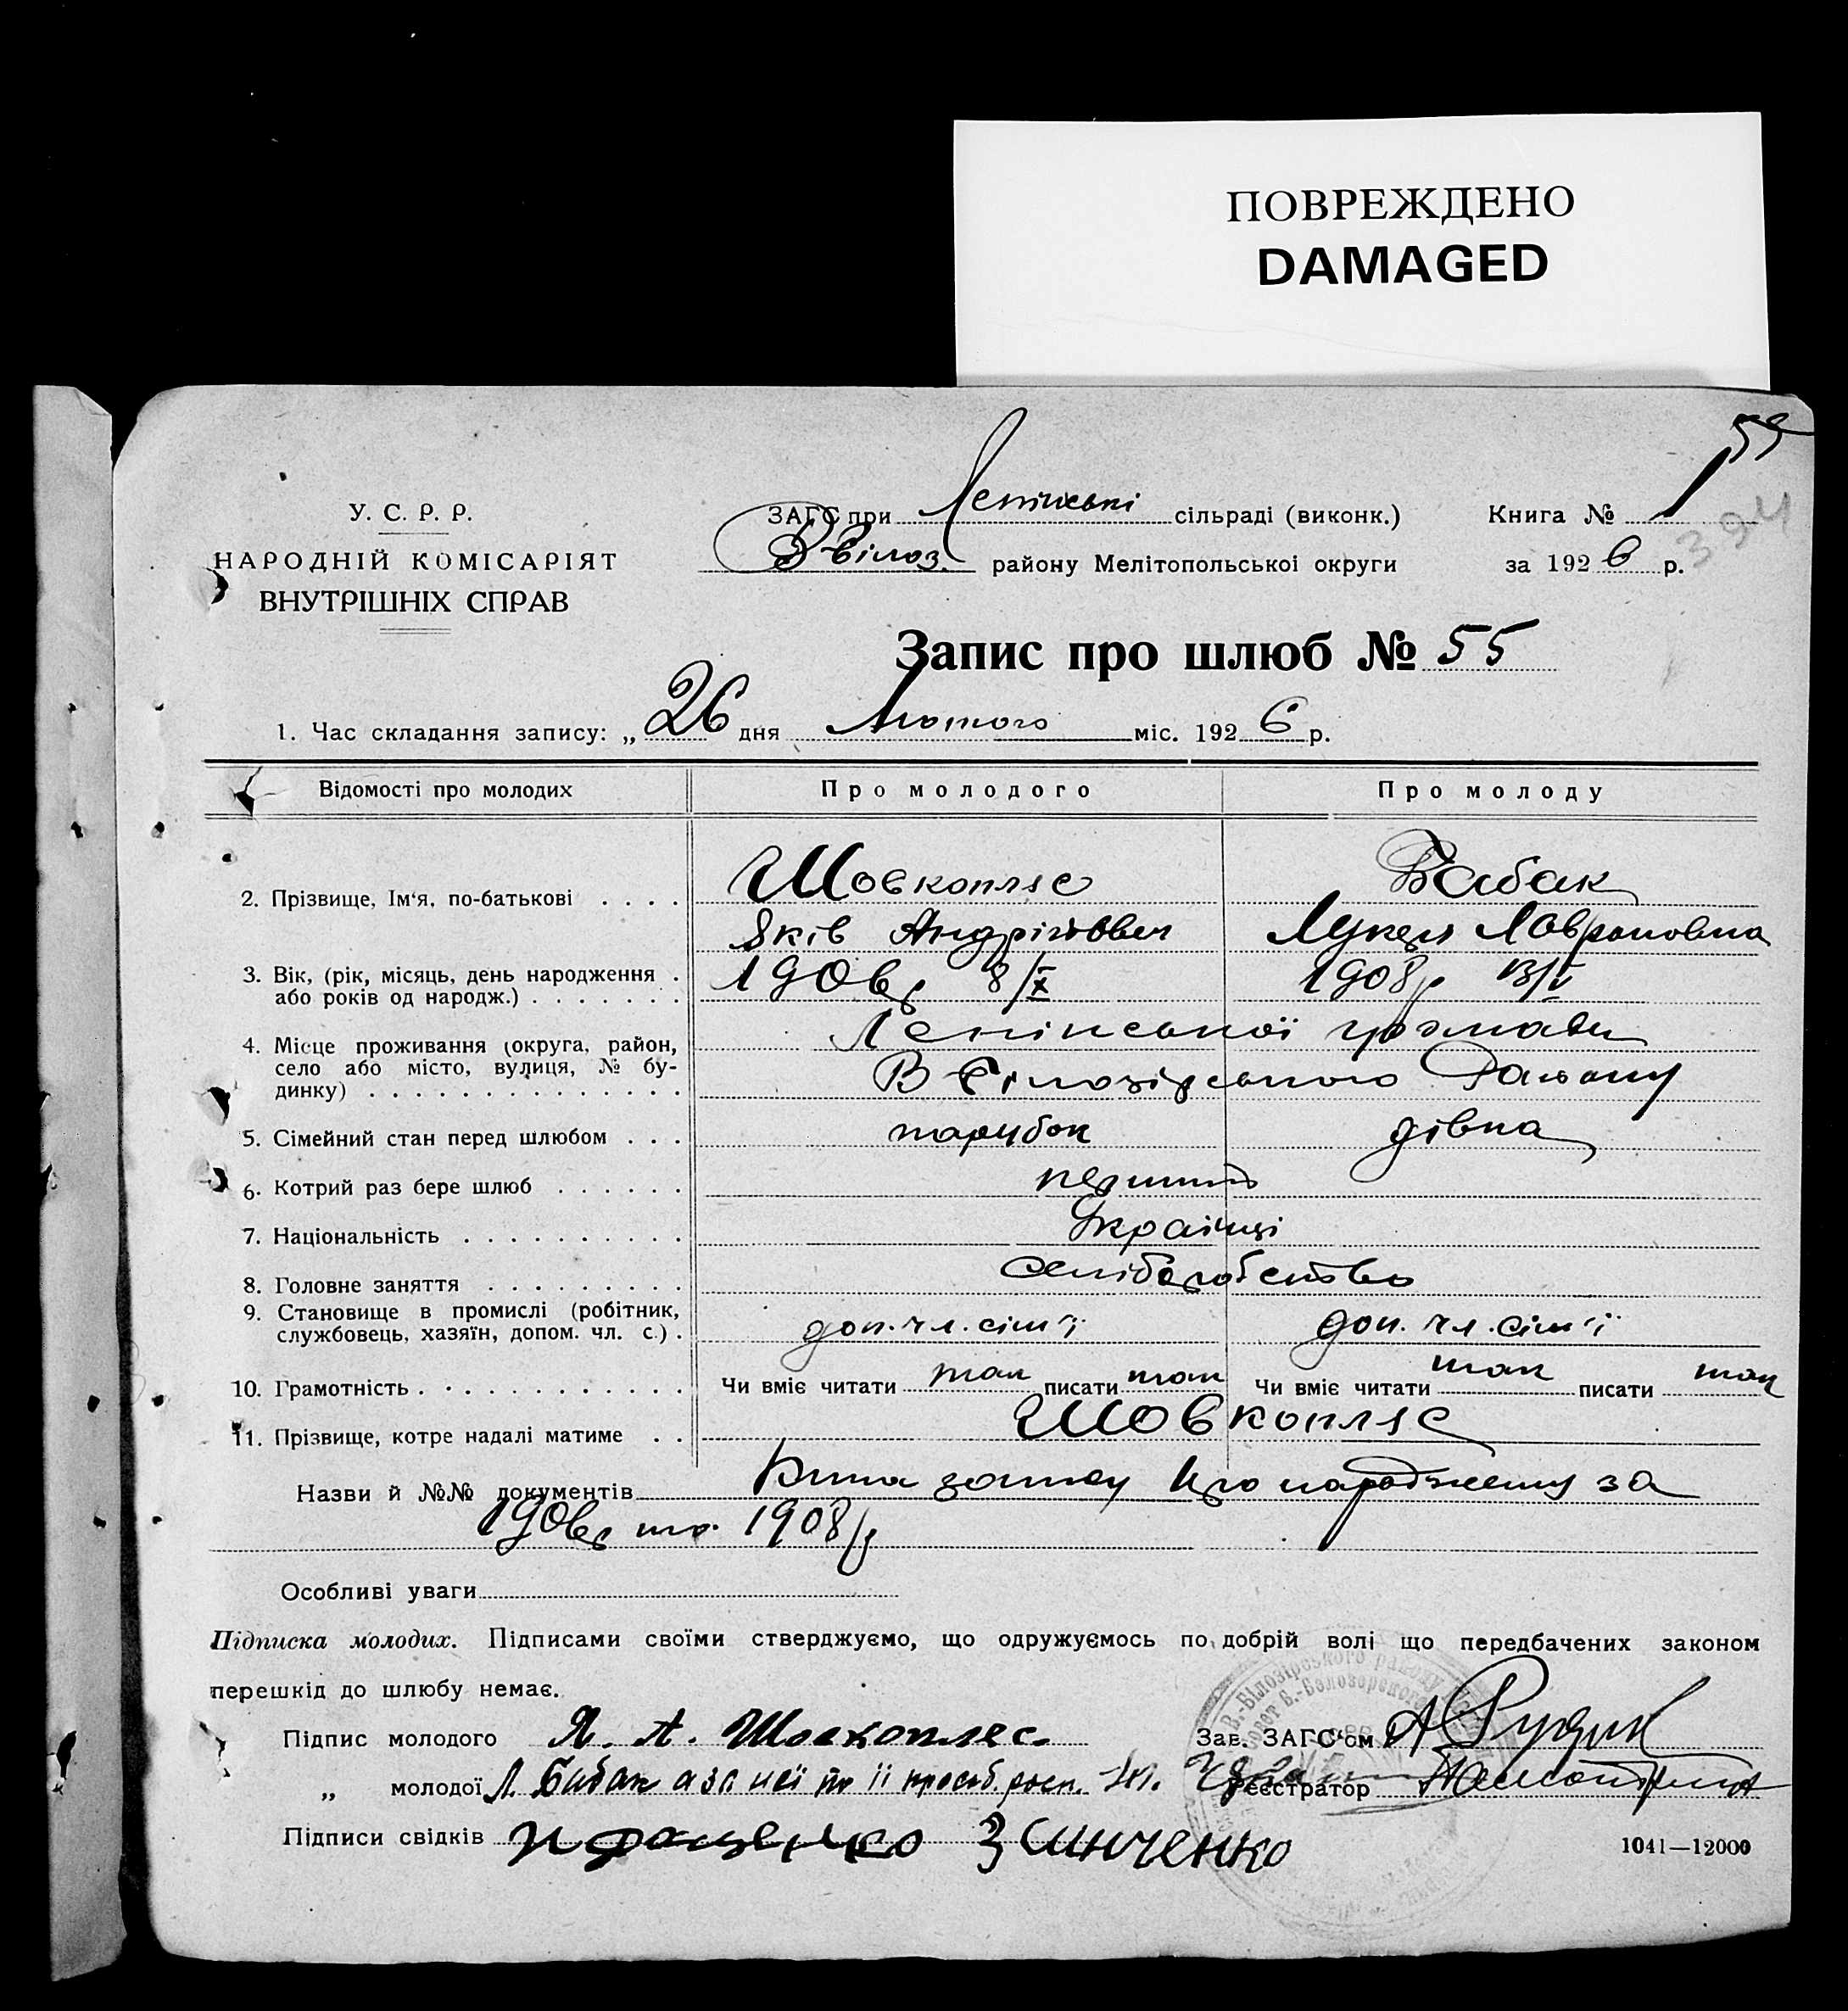 ПОВРЕЖДЕНО
DAMAGED
59
394
У. С. Р. Р.
НАРОДНІЙ КОМІСАРІЯТ
ВНУТРІШНІХ СПРАВ
ЗАГС при Ленінські сільраді (виконк.)
В Білоз. району Мелітопольської округи
Книга № 1
за 1926 р.
Запис про шлюб № 55
1. Час складання запису: „ 26 дня Лютого міс. 1926 р.
Відомості про молодих Про молодого Про молоду
2. Прізвище, Ім'я, по-батькові . . . . Шовкопляс Бабак
Яків Андрійович Лукеря Лавроновна
3. Вік, (рік, місяць, день народження . 1906р 8/X 1908р 13/V
або років од народж.) . . . . . . .
4. Місце проживання (округа, район, Ленінської громади
село або місто, вулиця, № бу- В Білозірського Району
динку) . . . . . . . . . . . . . .
5. Сімейний стан перед шлюбом . . . парубок дівка
6. Котрий раз бере шлюб . . . . . . перший
7. Національність . . . . . . . . . . Українці
8. Головне заняття . . . . . . . . .
9. Становище в промислі (робітник,
службовець, хазяїн, допом. чл. с.) . доп. чл. сім'ї доп. чл. сім'ї
10. Грамотність . . . . . . . . . . . . Чи вміє читати так писати так Чи вміє читати так писати так
11. Прізвище, котре надалі матиме . . Шовкопляс
Назви й №№ документів запису про народження за
1906р та 1908р
Особливі уваги
Підписка молодих. Підписами своїми стверджуємо, що одружуємось по добрій волі що передбачених законом
перешкід до шлюбу немає.
Підпис молодого Я. А. Шовкопляс Зав. ЗАГС'ом А Рудик
„ молодої Л. Бабак а за неї по її просьб. росп. Реєстратор
Підписи свідків Зинченко
1041—12000